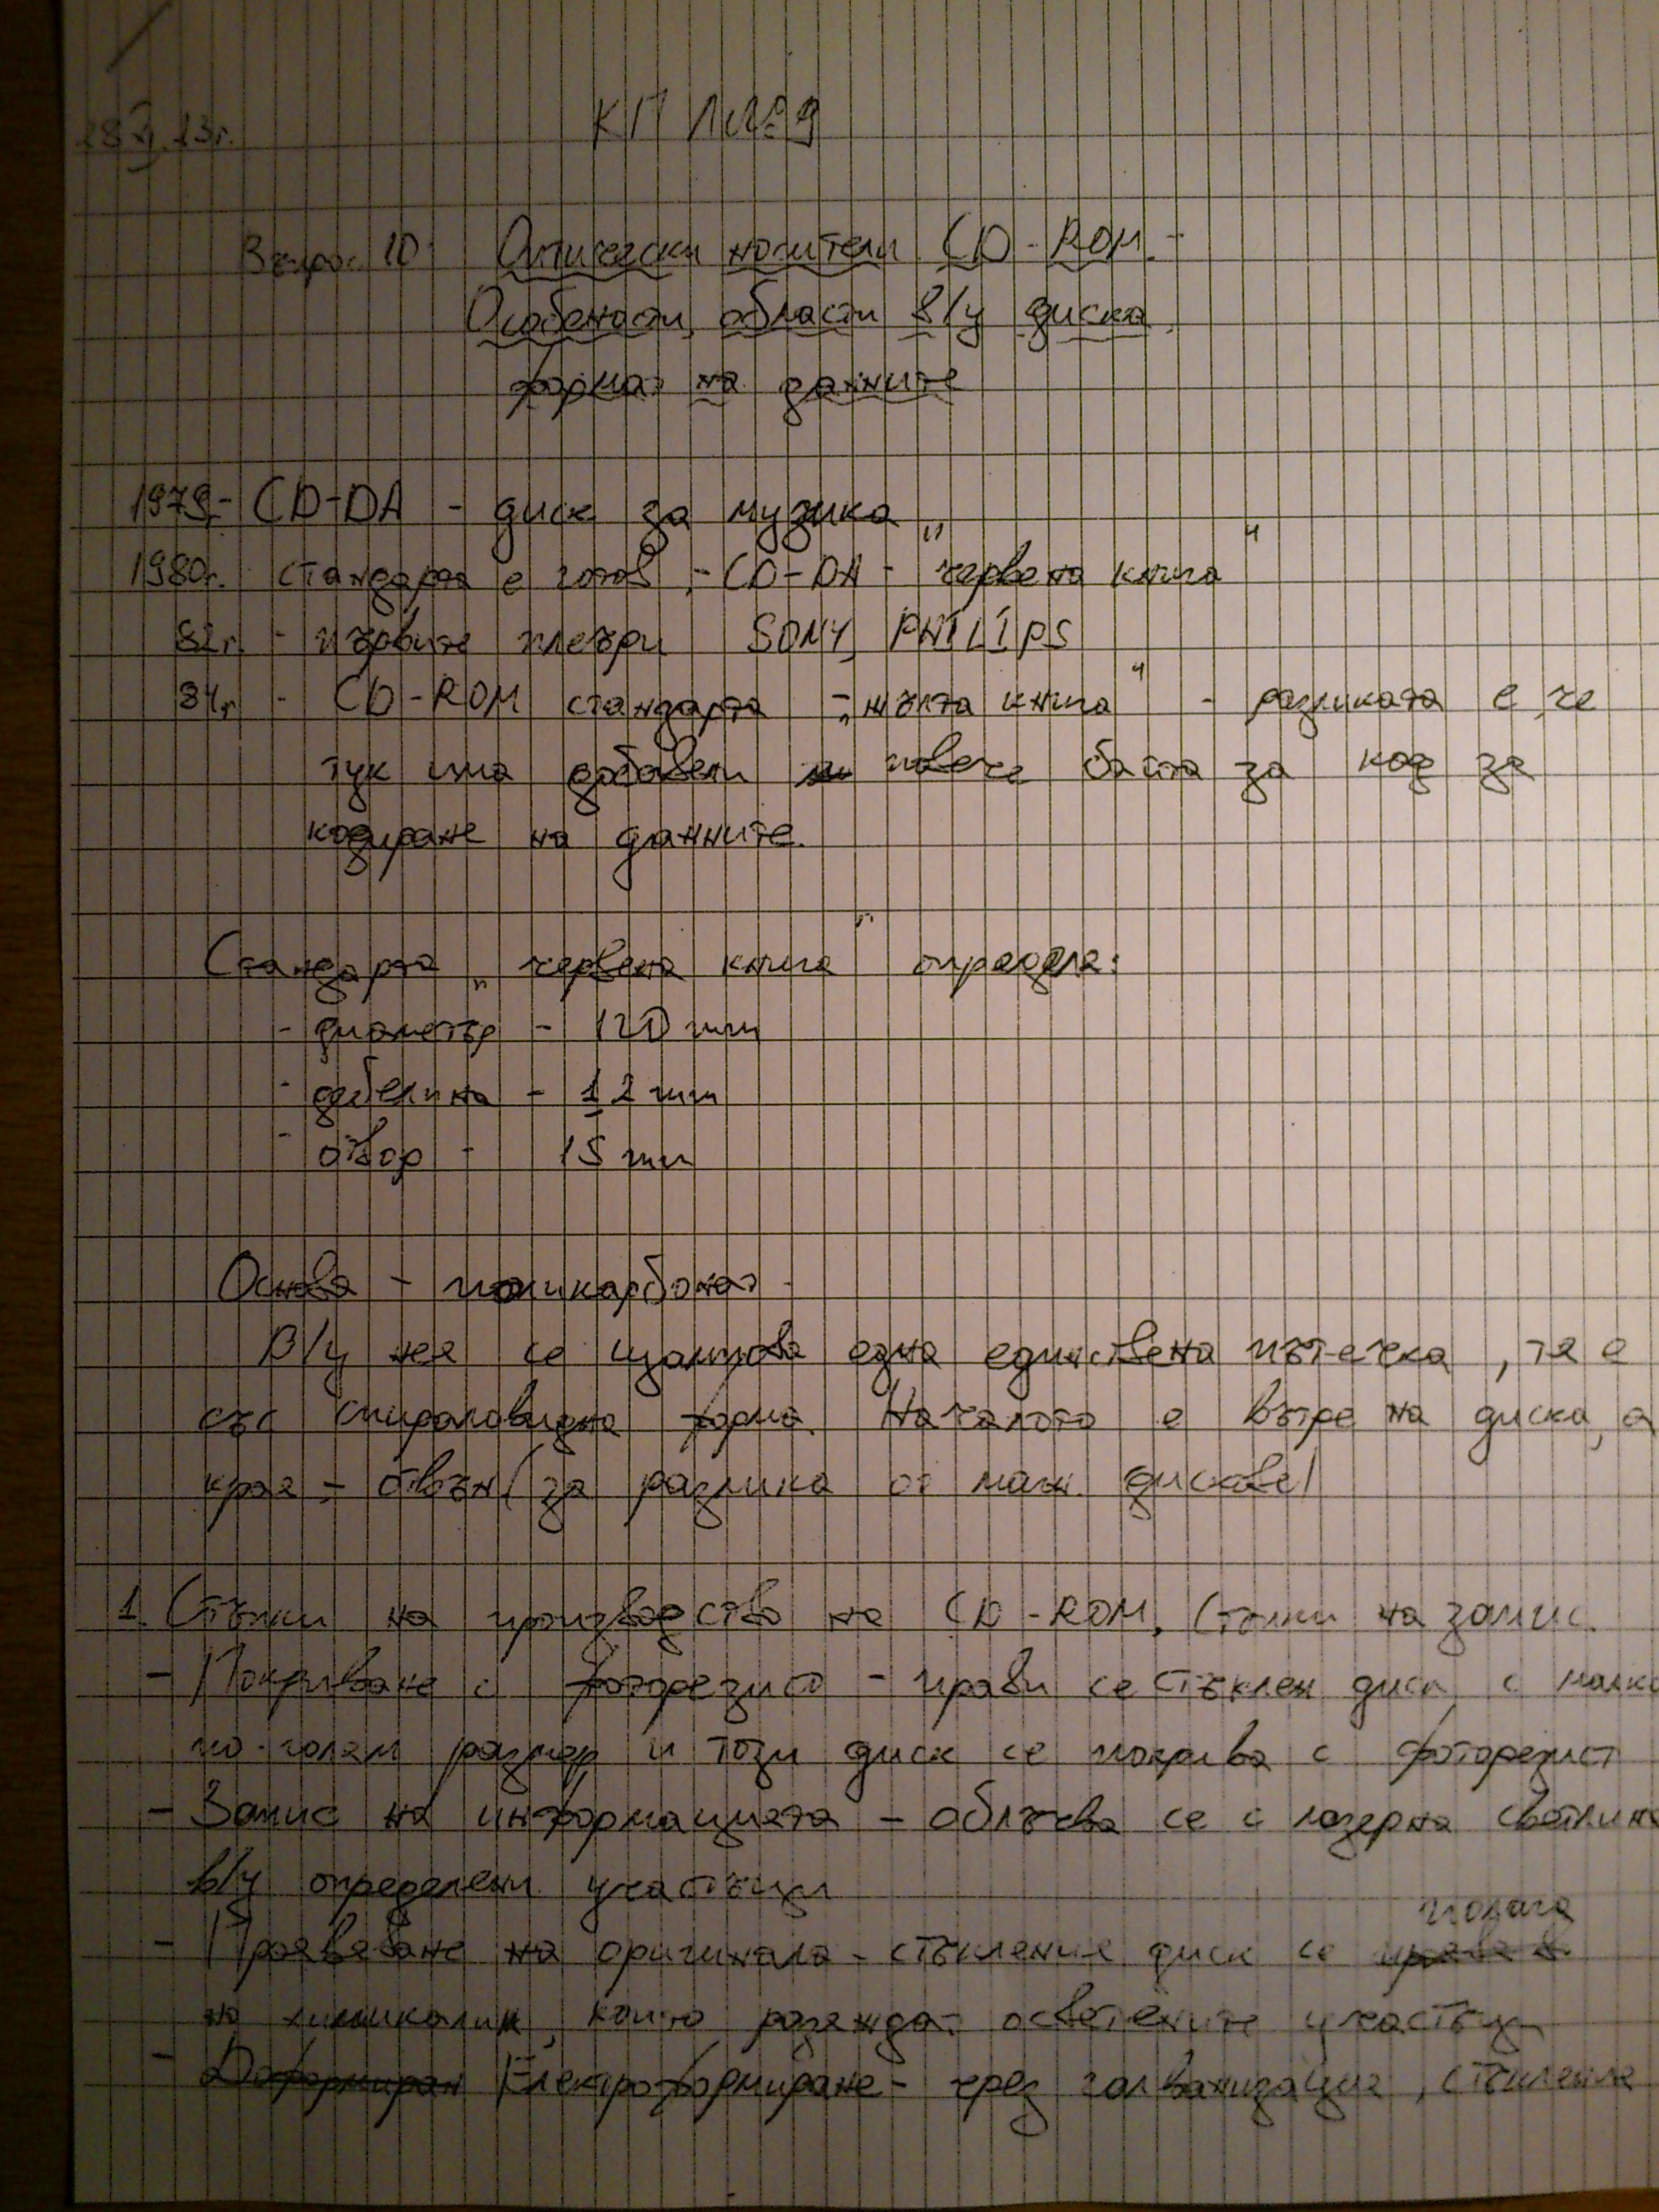 КП Л№9
Въпрос 10 Оптически носители CD-ROM -
Особености, области в/у диска,
формат на данните
1979г- CD-DA - диск за музика
1980г. стандарта е готов - CD-DA - "червена книга"
82г - първите плеъри SONY, PHILIPS
84г - CD-ROM стандарта - "жълта книга" - разликата е, че
тук има добавени повече байта за код за
кодиране на данните.
Стандарта "червена книга" определя:
- диаметър - 120 mm
- дебелина - 1,2 mm
- отвор - 15 mm
Основа - поликарбонат -
В/у нея се щампова една единствена пътечка, тя е
със спираловидна форма. Началото е вътре на диска, а
края - отвън (за разлика от магн. дискове)
1. Стъпки на производство на CD-ROM. Стъпки на запис.
- Покриване с фоторезист - прави се стъклен диск с малко
по-голям размер и този диск се покрива с фоторезист
- Запис на информацията - облъчва се с лазерна светлина
в/у определени участъци
- Проявяване на оригинала - стъкления диск се полага
на химикали, които разяждат осветените участъци
- Електроформиране - чрез галванизация, стъкления